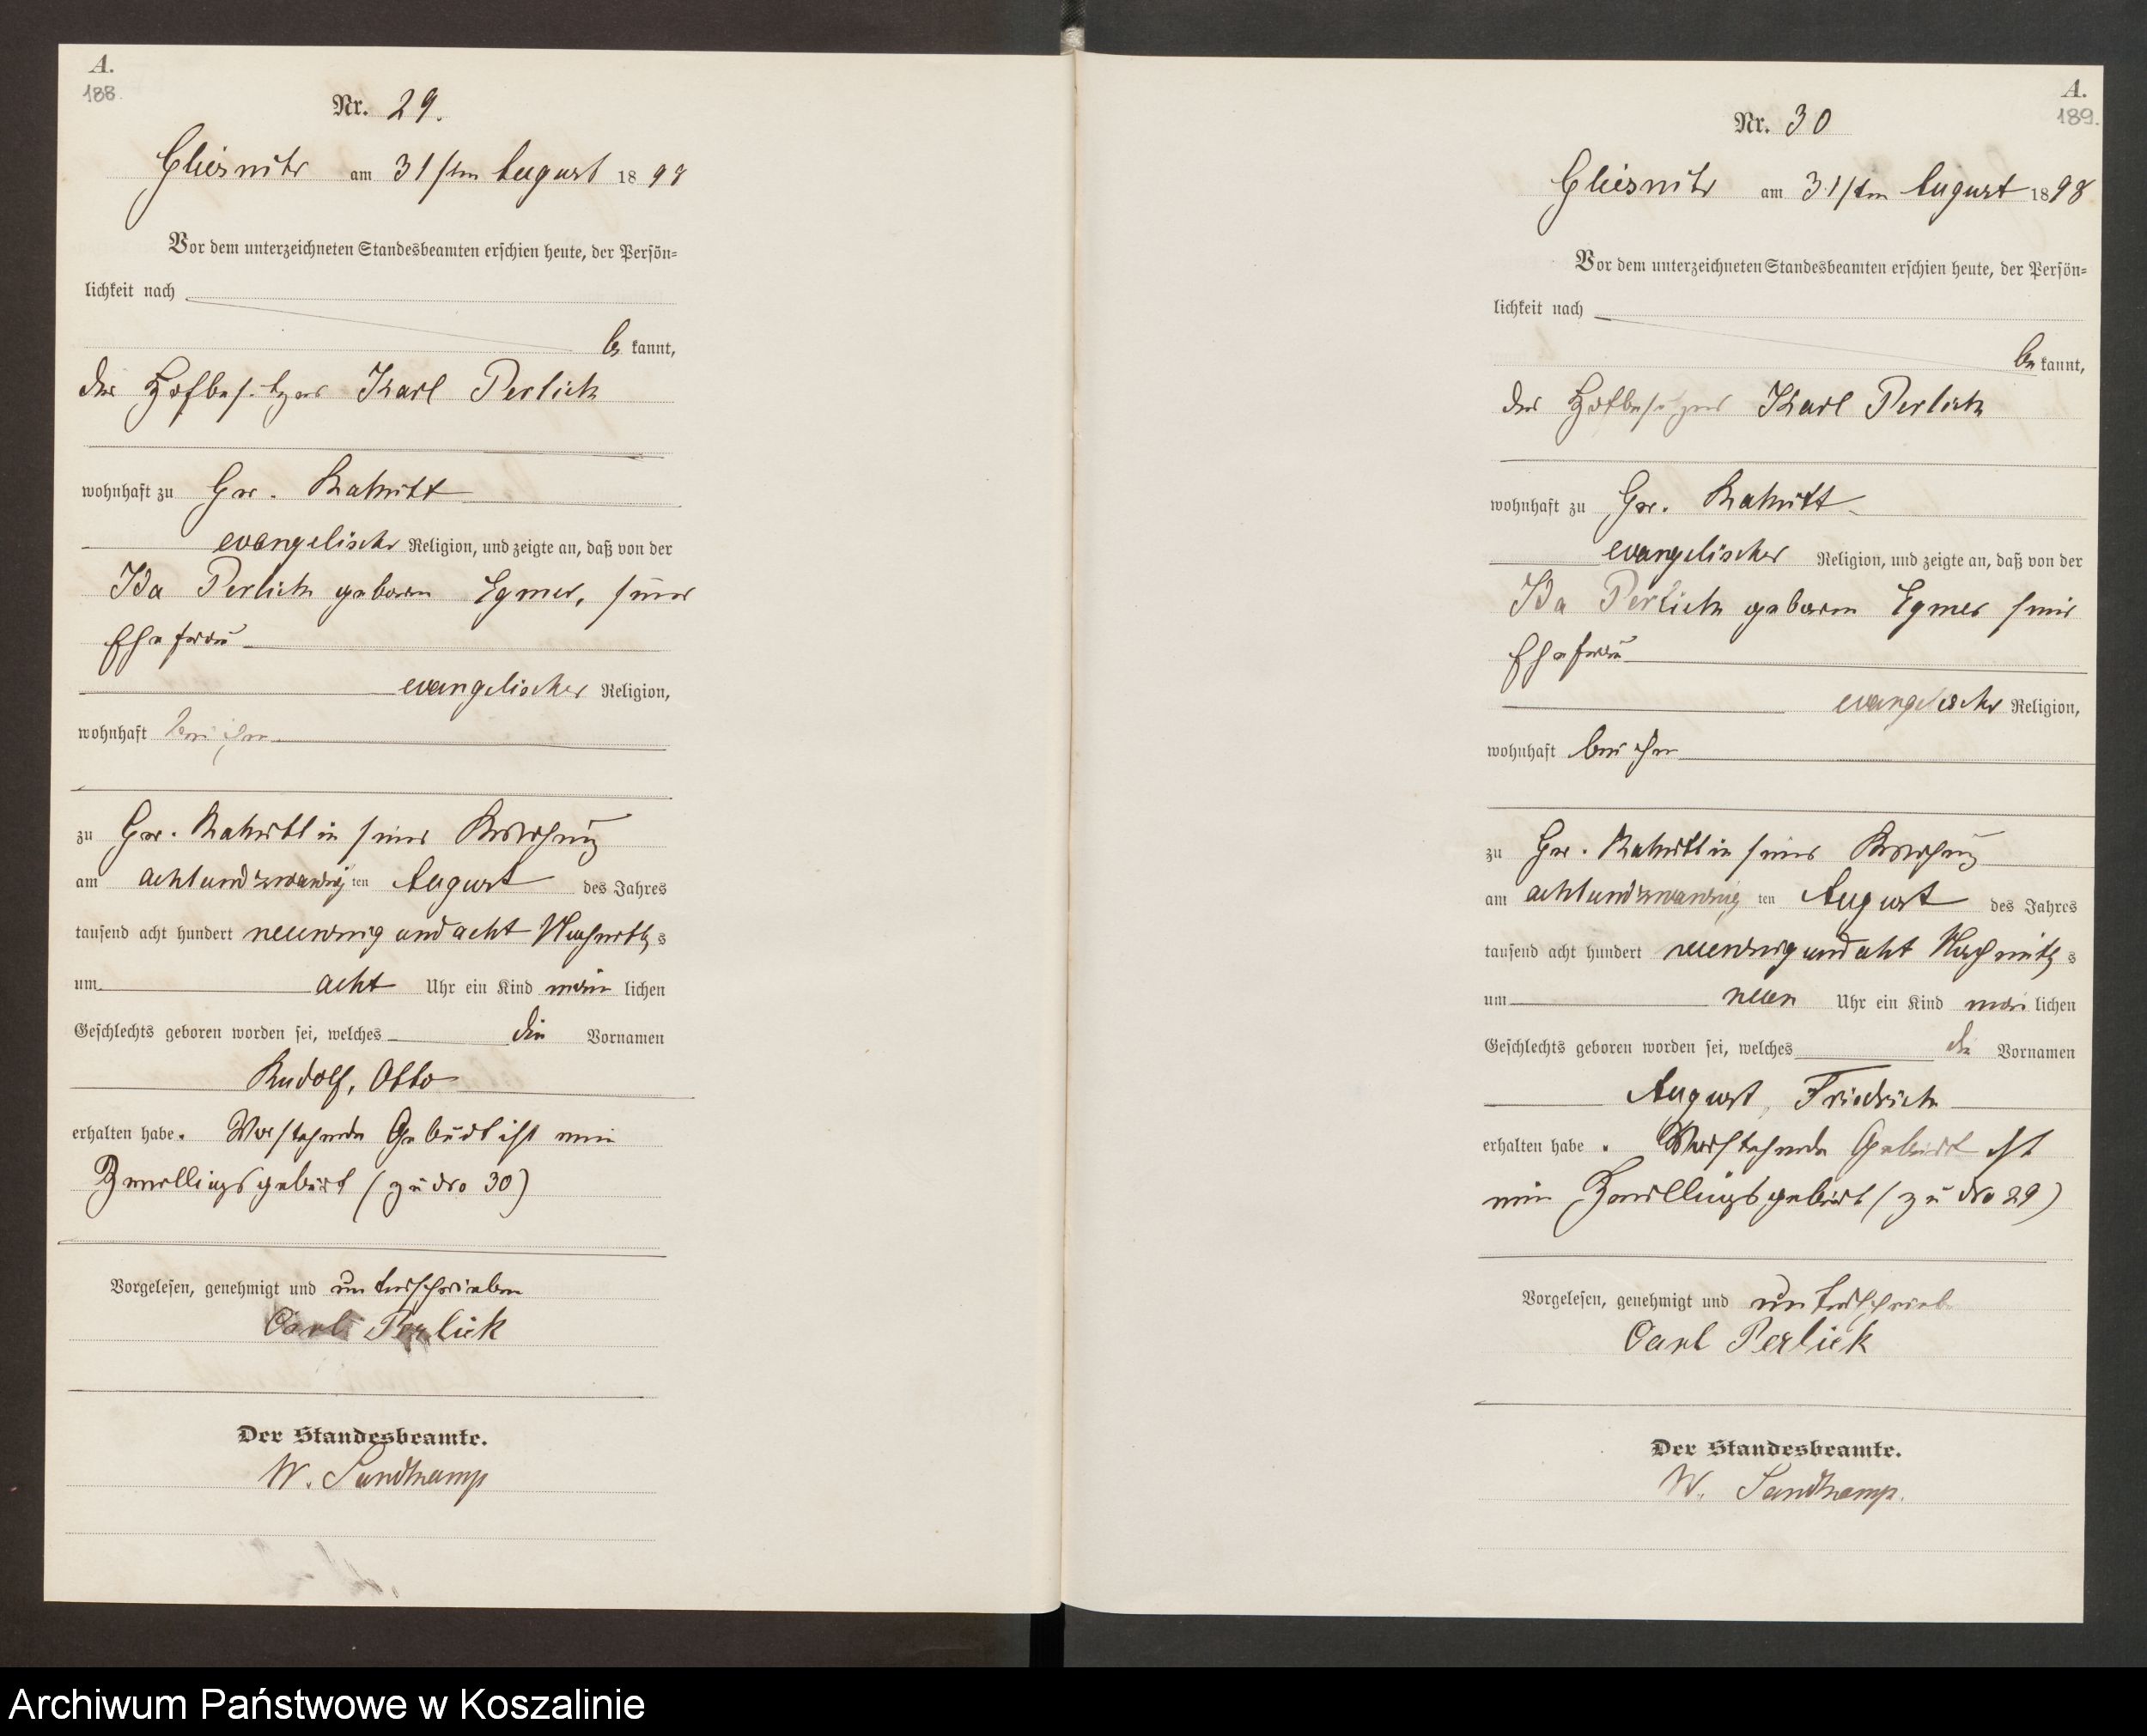 A.
188.
Nr. 29.
Gliesnitz am 31sten August 1898
Vor dem unterzeichneten Standesbeamten erschien heute, der Persön=
lichkeit nach
be kannt,
der Hofbesitzer Karl Perlick
wohnhaft zu Gr. Rakitt
evangelischer Religion, und zeigte an, daß von der
Ida Perlick geboren Egmer, seiner
Ehefrau
evangelischer Religion,
wohnhaft bei ihm
zu Gr. Rakitt in seiner Behausung
am achtundzwanzig ten August des Jahres
tausend acht hundert neunzig und acht Nachmittags
um acht Uhr ein Kind männ lichen
Geschlechts geboren worden sei, welches die Vornamen
Rudolf, Otto
erhalten habe. Vorstehende Geburt ist eine
Zwillingsgeburt (zu No 30)
Vorgelesen, genehmigt und unterschrieben
Carl Perlick
Der Standesbeamte.
W. Sandkamp
A.
189.
Nr. 30
Gliesnitz am 31sten August 1898
Vor dem unterzeichneten Standesbeamten erschien heute, der Persön=
lichkeit nach
be kannt,
der Hofbesitzer Karl Perlick
wohnhaft zu Gr. Rakitt
evangelischer Religion, und zeigte an, daß von der
Ida Perlick geboren Egmer seiner
Ehefrau
evangelischer Religion,
wohnhaft bei ihm
zu Gr. Rakitt in seiner Behausung
am achtundzwanzig ten August des Jahres
tausend acht hundert neunzig und acht Nachmittags
um neun Uhr ein Kind männ lichen
Geschlechts geboren worden sei, welches die Vornamen
August, Friedrich
erhalten habe. Vorstehende Geburt ist
eine Zwillingsgeburt (zu No 29)
Vorgelesen, genehmigt und unterschrieben
Carl Perlick
Der Standesbeamte.
W. Sandkamp.
Archiwum Państwowe w Koszalinie